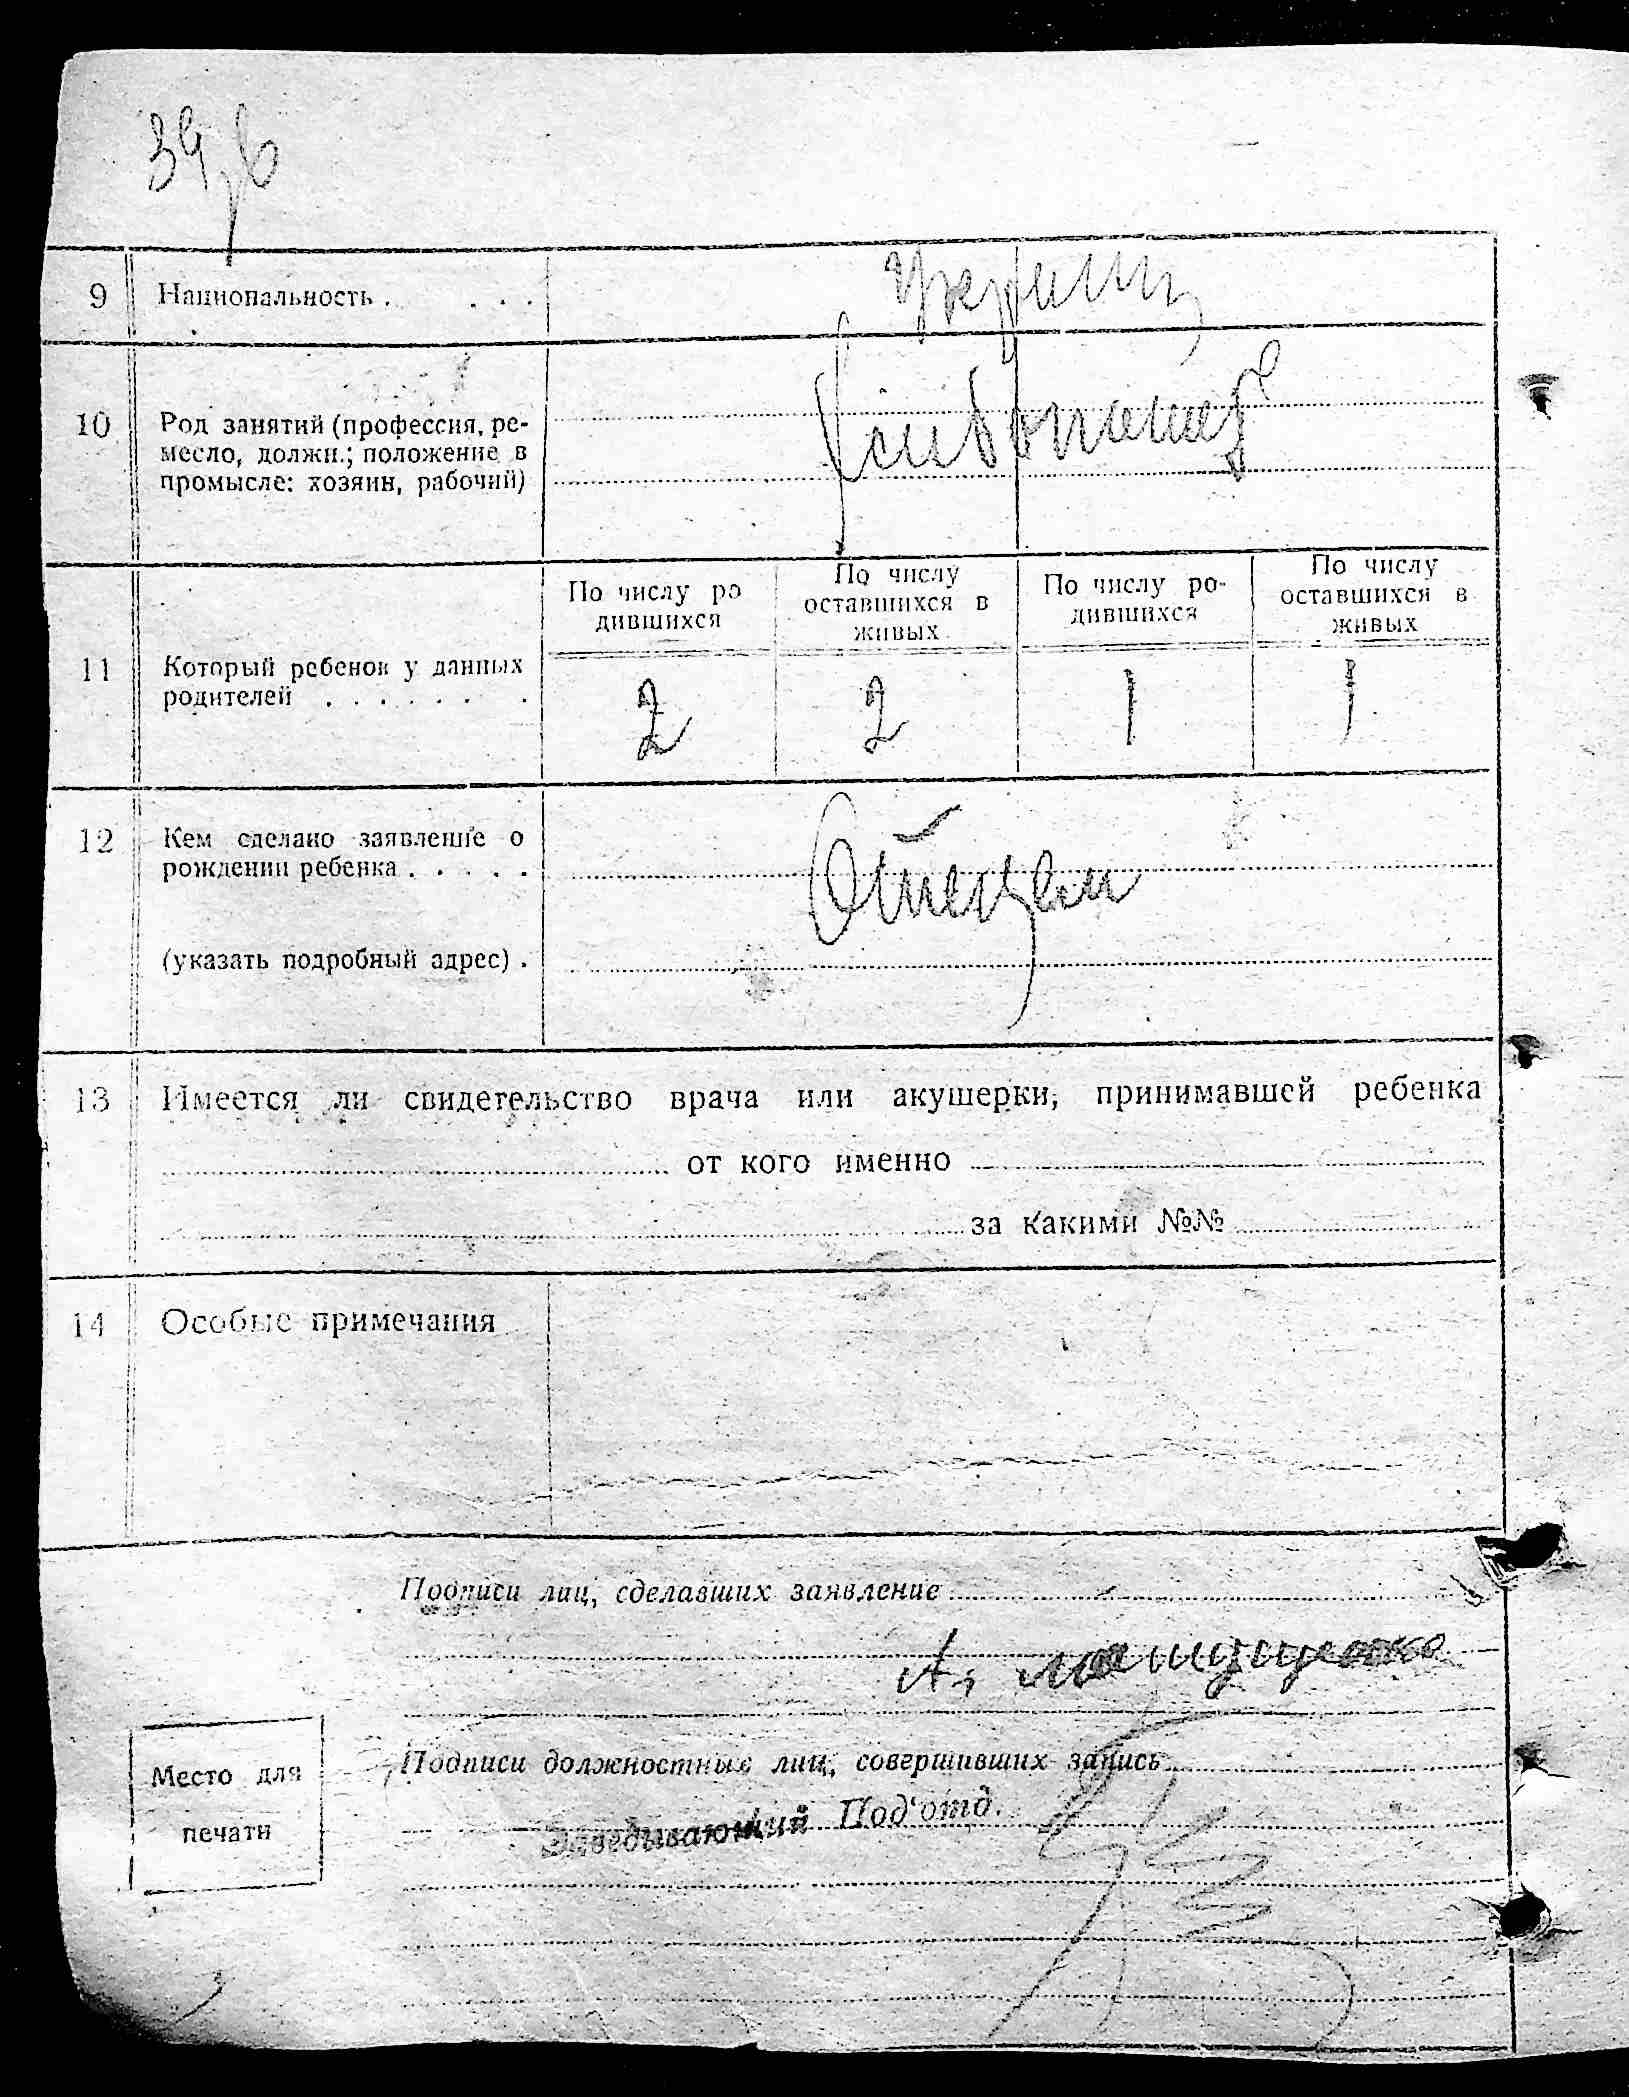 9 Национальность . . . .
Украинц
10 Род занятий (профессия, ре-
месло, должн.; положение в
промысле: хозяин, рабочий)
Хлебопашец
По числу ро
дившихся
По числу
оставшихся в
живых
По числу ро-
дившихся
По числу
оставшихся в
живых
11 Который ребенок у данных
родителей . . . . . . .
2 2 1 1
12 Кем сделано заявление о
рождении ребенка . . . . .
Отецем
(указать подробный адрес) .
13 Имеется ли свидетельство врача или акушерки, принимавшей ребенка
от кого именно
за какими №№
14 Особые примечания
Подписи лиц, сделавших заявление
А,
Подписи должностных лиц, совершивших запись
Заведывающий Под'отд.
Место для
печати